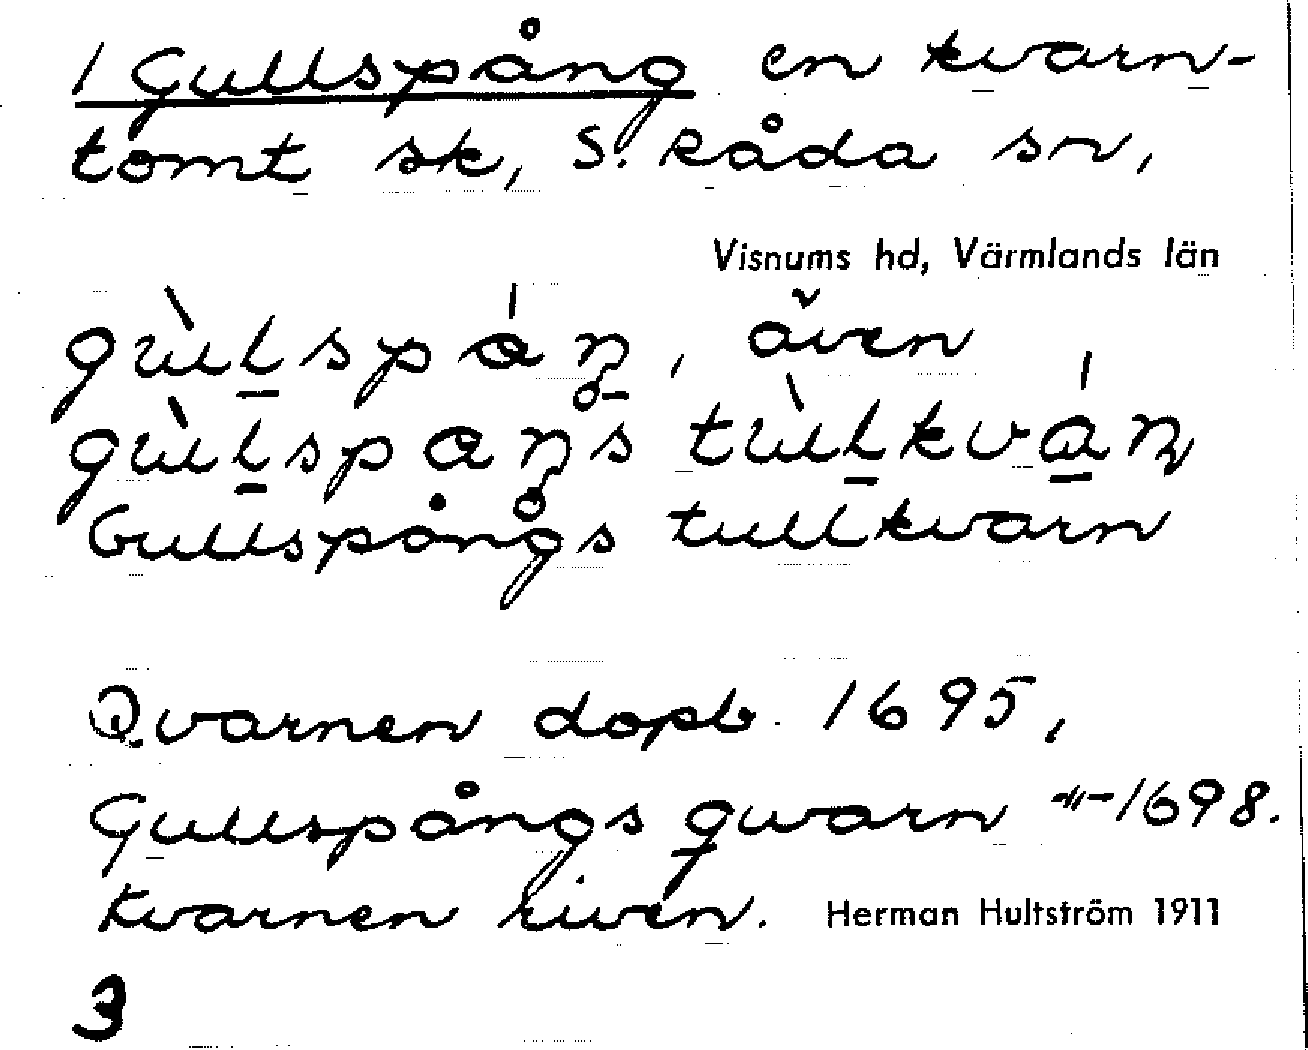 1 Gullspång en kvarn-
tomt sk, S. Råda sn,
Visnums hd, Värmlands län
gùl̲spáŋ, även
gùl̲spaŋs tùl̲kvá̲ɳ
Gullspångs tullkvarn
Qvarnen dopb. 1695,
Gullspångs qwarn -"- 1698.
Kvarnen riven. Herman Hultström 1911
3